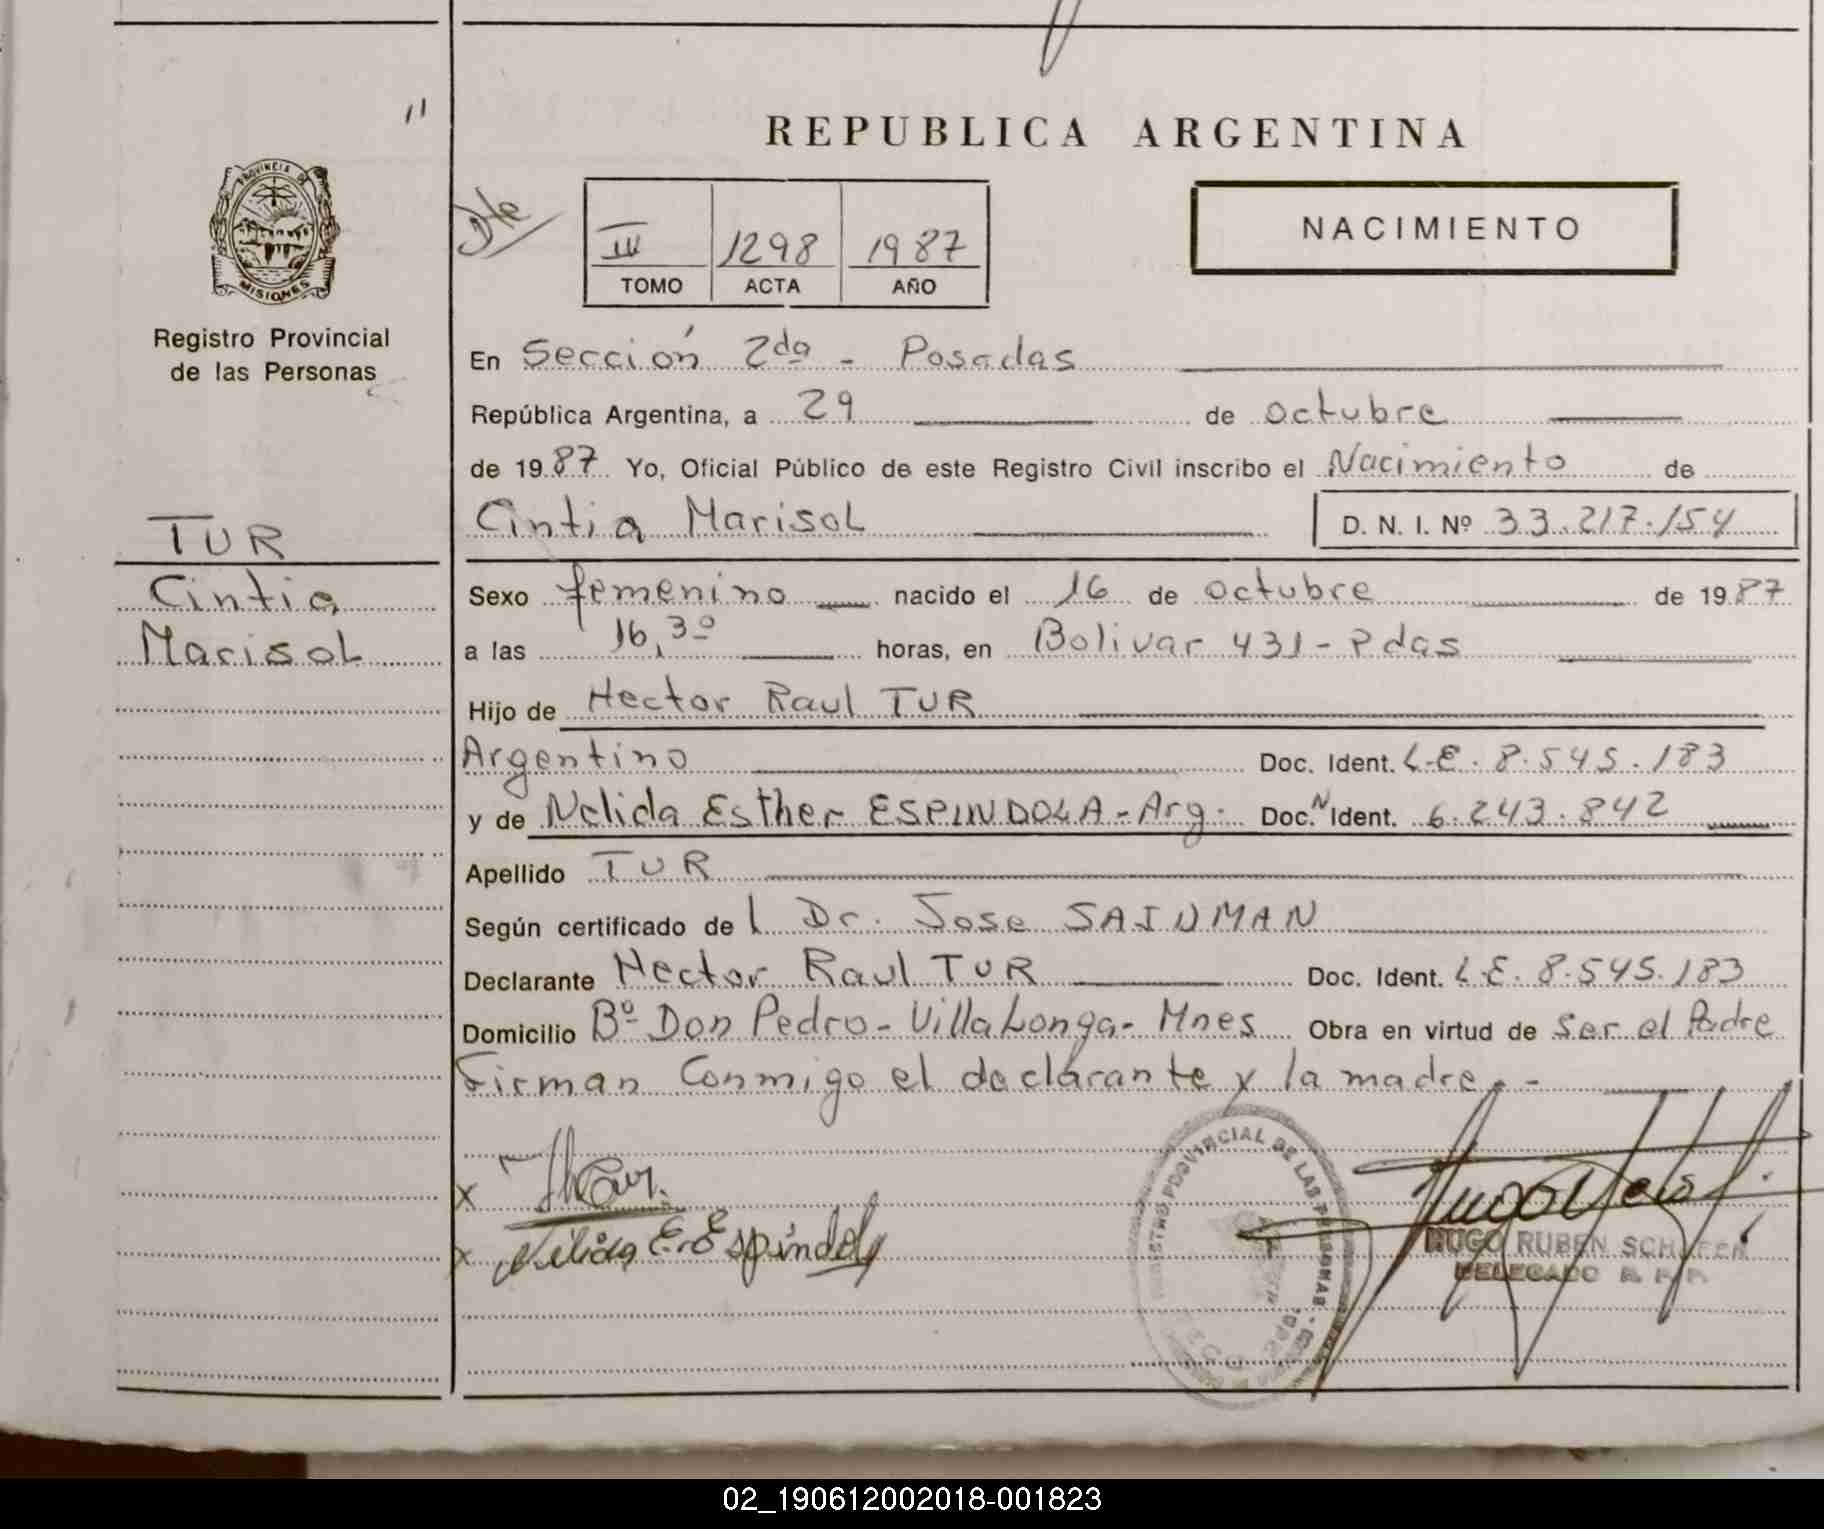 REPUBLICA ARGENTINA
PROVINCIA DE
MISIONES
Registro Provincial
de las Personas
TUR
Cintia
Marisol
Dte
III 1298 1987
TOMO ACTA AÑO
NACIMIENTO
En Sección 2da - Posadas
República Argentina, a 29 de octubre
de 1987 Yo, Oficial Público de este Registro Civil inscribo el Nacimiento de
Cintia Marisol D. N. I. Nº 33.217.154
Sexo femenino nacido el 16 de octubre de 1987
a las 16,30 horas, en Bolivar 431 - Pdas
Hijo de Hector Raul TUR
Argentino Doc. Ident. L.E. 8.545.183
y de Nelida Esther ESPINDOLA - Arg. Doc. N Ident. 6.243.842
Apellido TUR
Según certificado del Dr. Jose SAINMAN
Declarante Hector Raul TUR Doc. Ident. L.E. 8.545.183
Domicilio Bº Don Pedro - Villa Longa - Mnes Obra en virtud de Ser el Padre
Firman Conmigo el declarante y la madre. -
x
x Nélida E. Espindola
REGISTRO PROVINCIAL DE LAS PERSONAS
HUGO RUBEN SCHAFER
DELEGADO R. P. P.
02_190612002018-001823